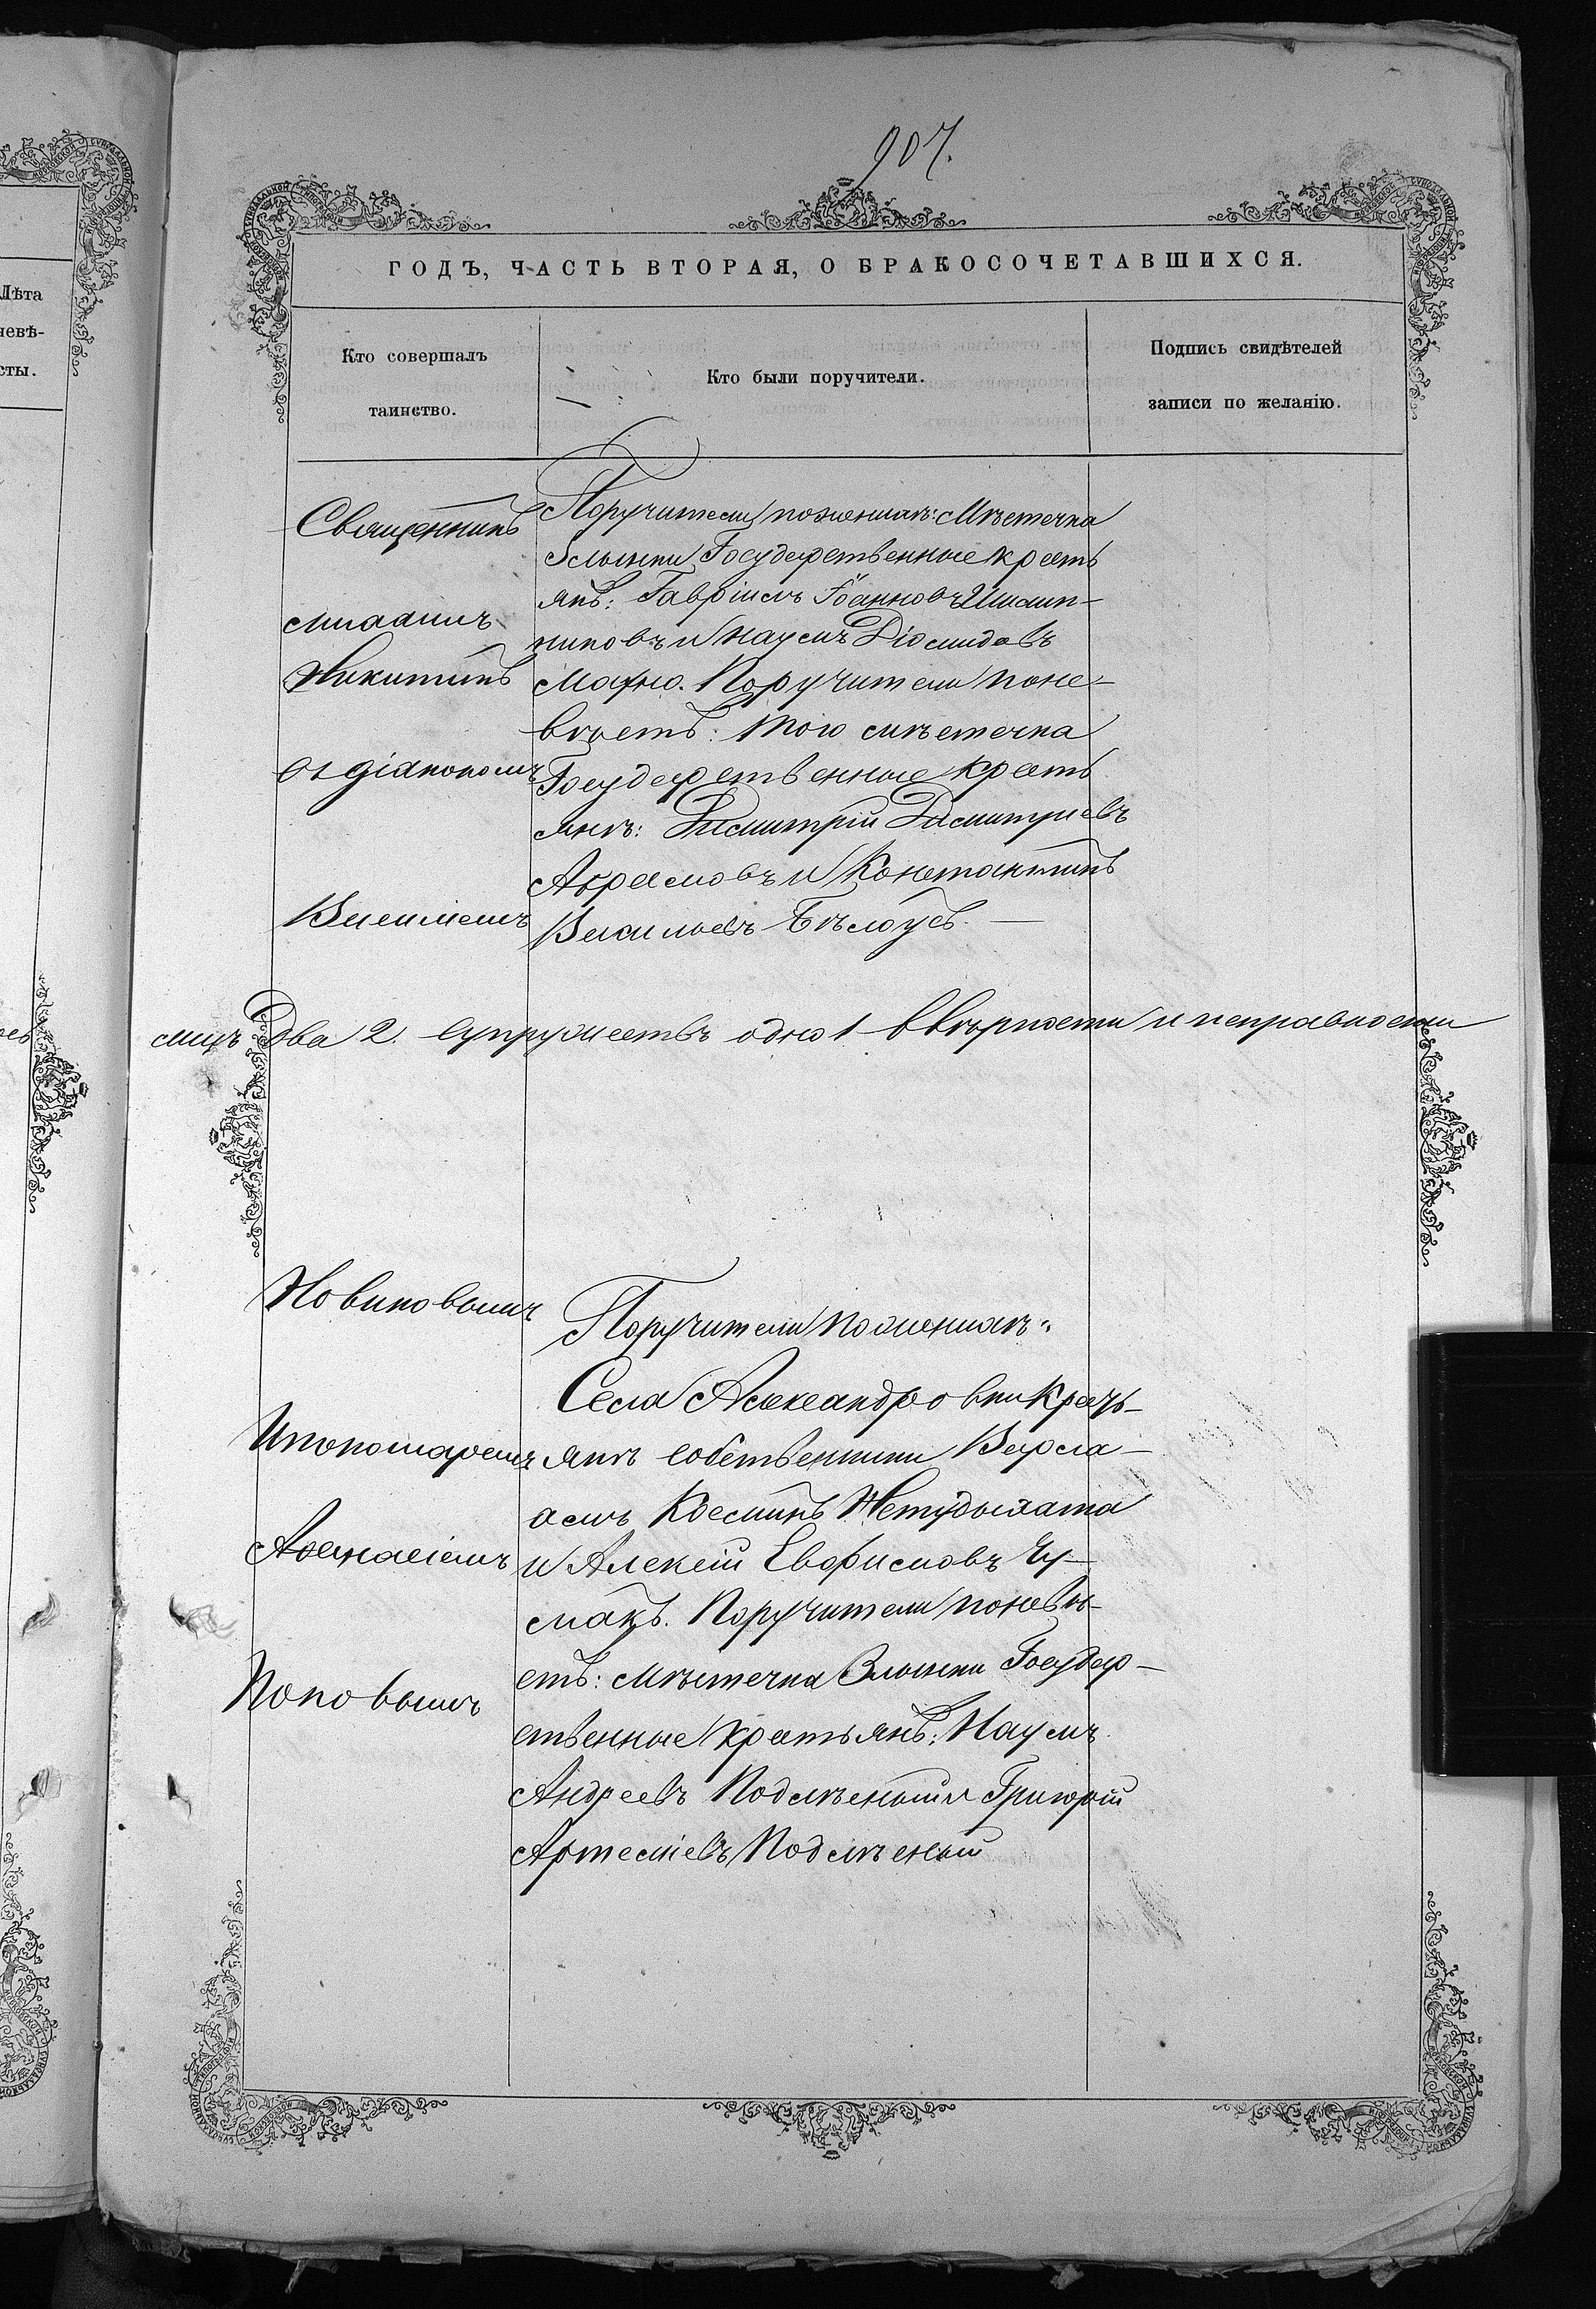 907.
ГОДЪ, ЧАСТЬ ВТОРАЯ, О БРАКОСОЧЕТАВШИХСЯ.
Лѣта
невѣ-
сты.
Кто совершалъ
таинство.
Кто были поручители.
Подпись свидѣтелей
записи по желанію.
Священникъ
Никитинъ
съ діакономъ
Василіемъ
Поручители по женихѣ: Мѣстечка
Злынки Государственные кресть
янѣ: Гавріилъ Іоанновъ
никовъ и Наумъ Діомидовъ
Махно. Поручители по не-
вѣстѣ: того мѣстечка
Государственные кресть
янѣ: Димитрій Димитріевъ
Абрамовъ и Константинъ
Васильевъ Бѣлоусъ. —
два 2. супружествъ одно 1 вѣрности и исправности
Новиковымъ
И пономаремъ
Аѳанасіемъ
Поповымъ
Поручители по женихѣ:
Села Александровки Крест-
янѣ собственники Варла-
амъ Косминъ Нетудыхата
и Алексій Евфимовъ Чу-
макъ. Поручители по невѣ-
стѣ: Мѣстечка Злынки Государ-
ственные крестьянѣ: Наумъ
Андреевъ Подлѣсный и Григорій
Артеміевъ Подлѣсный